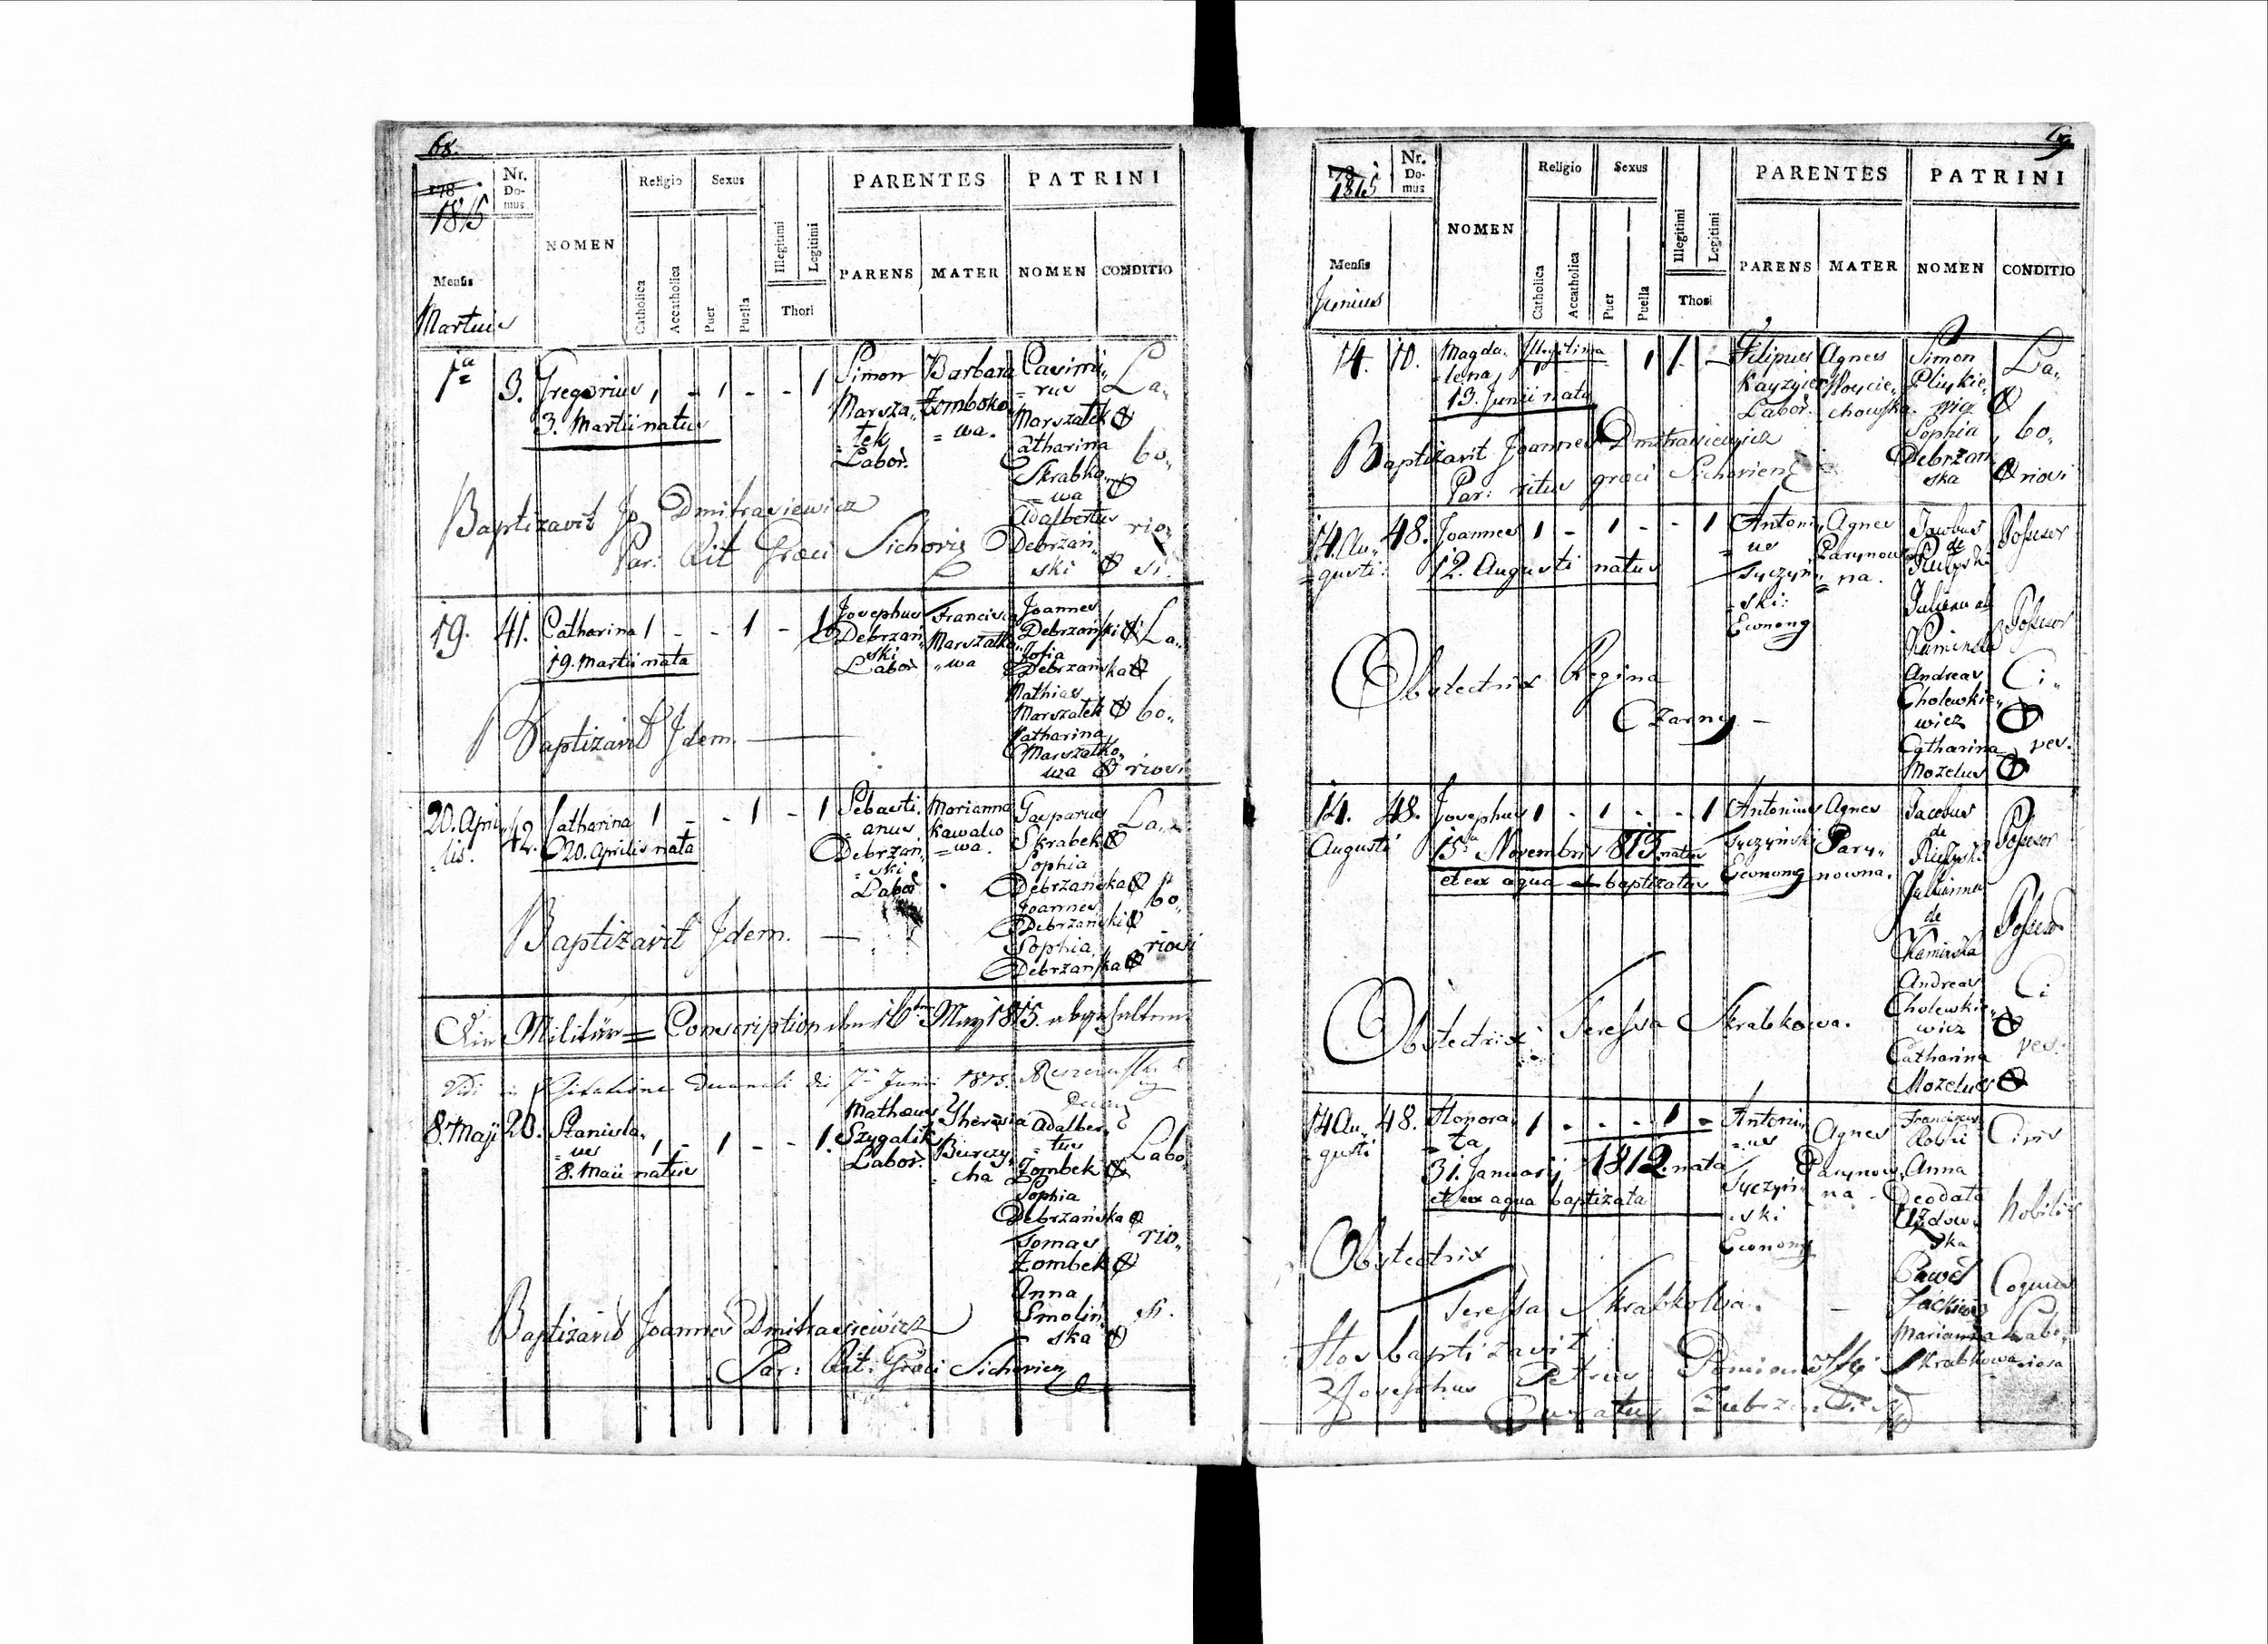 68.
178
1815
Nr. Do-mus
NOMEN
Religio
Sexus
Catholica
Accatholica
Puer
Puella
Illegitimi
Legitimi
Thori
PARENTES
PATRINI
PARENS
MATER
NOMEN
CONDITIO
Mensis
Martius
1ª
3.
Gregorius
1 - 1 - - 1
3. Martii natus
Simon
Marsza=
=lek
Labor.
Barbara
Zomboko
=wa.
Casimi=
=rus
Marszałek
Catharina
Skrabko
=wa
Adalbertus
Debrzań
ski
La=
bo=
rio=
si.
Baptizavit Jo Dmitrasiewicz
Par: Rit Graeci
19.
41.
Catharina
1 - - 1 - 1
19. Martii nata
Josephus
Debrzań
ski
Labor
Francisca
Marszałko
=wa
Joannes
Debrzański
Zofia
Debrzańska
Mathias
Marszałek
Catharina
Marszałko=
wa
La=
bo=
riosi
Baptizavit Idem.
20. Apri
lis.
42.
Catharina
1 - - 1 - 1
20. Aprilis nata
Sebasti=
anus
Debrzań
=ski
Labor
Marianna
Kawalco
=wa.
Gasparus
Skrabek
Sophia
Debrzańska
Joannes
Debrzański
Sophia
Debrzańska
La=
bo=
riosi
Baptizavit Idem.
Militär = Conscription den 16ten May 1815. abgehalten
Vidi in Visitatione Decanali die 7 Junii 1815.
8. Maji
20.
Stanisla=
=us
1 - 1 - - 1.
8. Maii natus
Matheus
Szygalik
Labor.
Theresia
Burczy=
cha
Adalber=
tus
Zombek
Sophia
Debrzańska
Tomas
Zombek
Anna
Smoliń
ska
Labo=
rio=
si.
Baptizavit Joannes Dmitrasiewicz
Par: Rit: Graeci
69
178
1815
Nr. Do-mus
NOMEN
Religio
Sexus
Catholica
Accatholica
Puer
Puella
Illegitimi
Legitimi
Thosi
PARENTES
PATRINI
PARENS
MATER
NOMEN
CONDITIO
Mensis
Junius
14.
10.
Magda=
=lena
Illegitima
1 1. -
13. Junii nata
Filipus
Kayzyier
Labor.
Agnes
Woycie=
chowska.
Simon
Sophia
Debrzań
ska
La=
bo=
riosi
Baptizavit Joannes Dmitrasiewicz
Par: ritus graeci
14. Au=
=gusti.
48.
Joannes
1 - 1 - - 1
12. Augusti natus
Antoni
=us
Tyczyń
=ski:
Econom
Agnes
Parynow
=na.
Jacobus
de
Kaminska
Andreas
Cholewkie=
wicz
Catharina
Mozelus
Possesor
Possesor
Ci=
ves.
Obstetrix Regina
Czarny -
14.
Augusti
48.
Josephus
1 - 1 - - 1
15ta Novembris 813. natus
et ex aqua baptizatus
Antonius
Tyczyński
Econom
Agnes
Pary=
nowna.
Jacobus
de
Julianna
de
Kaminska
Andreas
Cholewkie=
wicz
Catharina
Mozelus
Possesor
Possesor
Ci
ves.
Obstetrix Teressa Skrabkowa.
14 Au=
gusti
48.
Honora=
ta
1 - - - 1 -
31. Januarij 1812. nata
et ex aqua baptizata
Antoni
=us
Tyczyń
=ski
Econom
Agnes
Parynow
na -
Franciscus
Anna
Deodata
ska
Paweł
Marianna
Skrabkowa
Civis
Nobilis
Labo=
riosa
Obstetrix
Teressa Skrabkowa.
Hos baptizavit
Josephus Petrus
Curatus